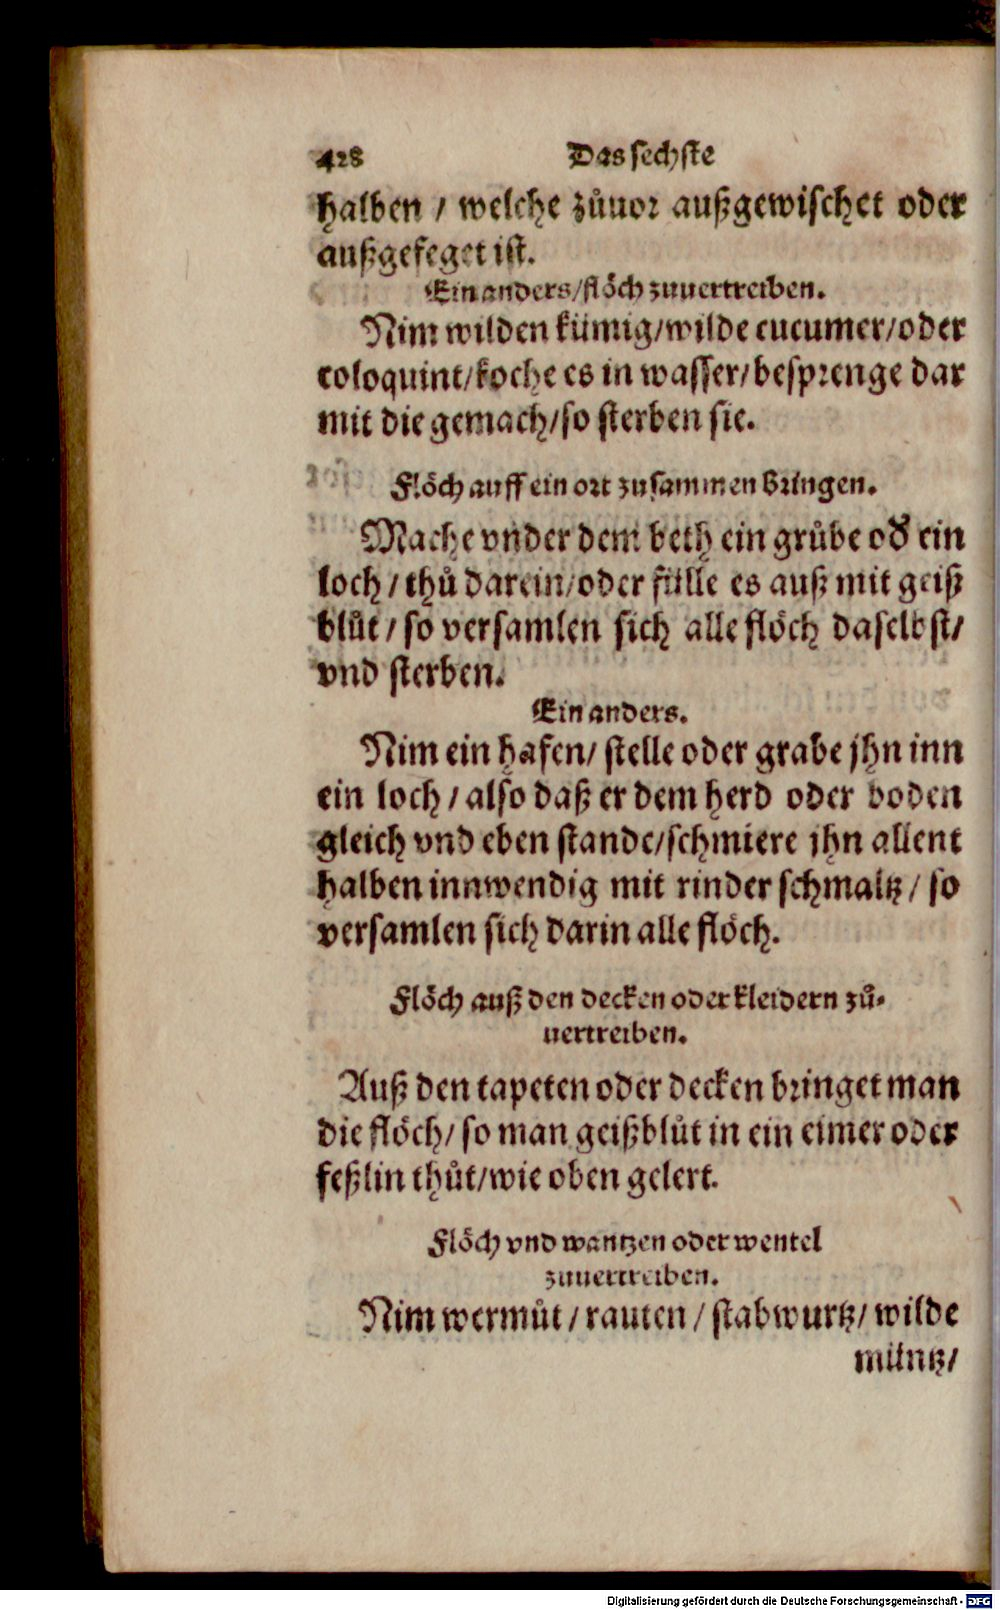 428 Das sechste
halben / welche zůuor außgewischet oder
außgefeget ist.
Ein anders/flöch zuuertreiben.
Nim wilden kümig/wilde cucumer/oder
coloquint/koche es in wasser/besprenge dar
mit die gemach/so sterben sie.
Flöch auff ein ort zusammen bringen.
Mache vnder dem beth ein grůbe od' ein
loch / thů darein/oder fülle es auß mit geiß
blůt / so versamlen sich alle flöch daselbst/
vnd sterben.
Ein anders.
Nim ein hafen/ stelle oder grabe jhn inn
ein loch / also daß er dem herd oder boden
gleich vnd eben stande/schmiere jhn allent
halben innwendig mit rinder schmaltz / so
versamlen sich darin alle flöch.
Flöch auß den decken oder kleidern zů-
uertreiben.
Auß den tapeten oder decken bringet man
die flöch/ so man geißblůt in ein eimer oder
feßlin thůt/wie oben gelert.
Flöch vnd wantzen oder wentel
zuuertreiben.
Nim wermůt / rauten / stabwurtz/ wilde
müntz/
Digitalisierung gefördert durch die Deutsche Forschungsgemeinschaft - DFG